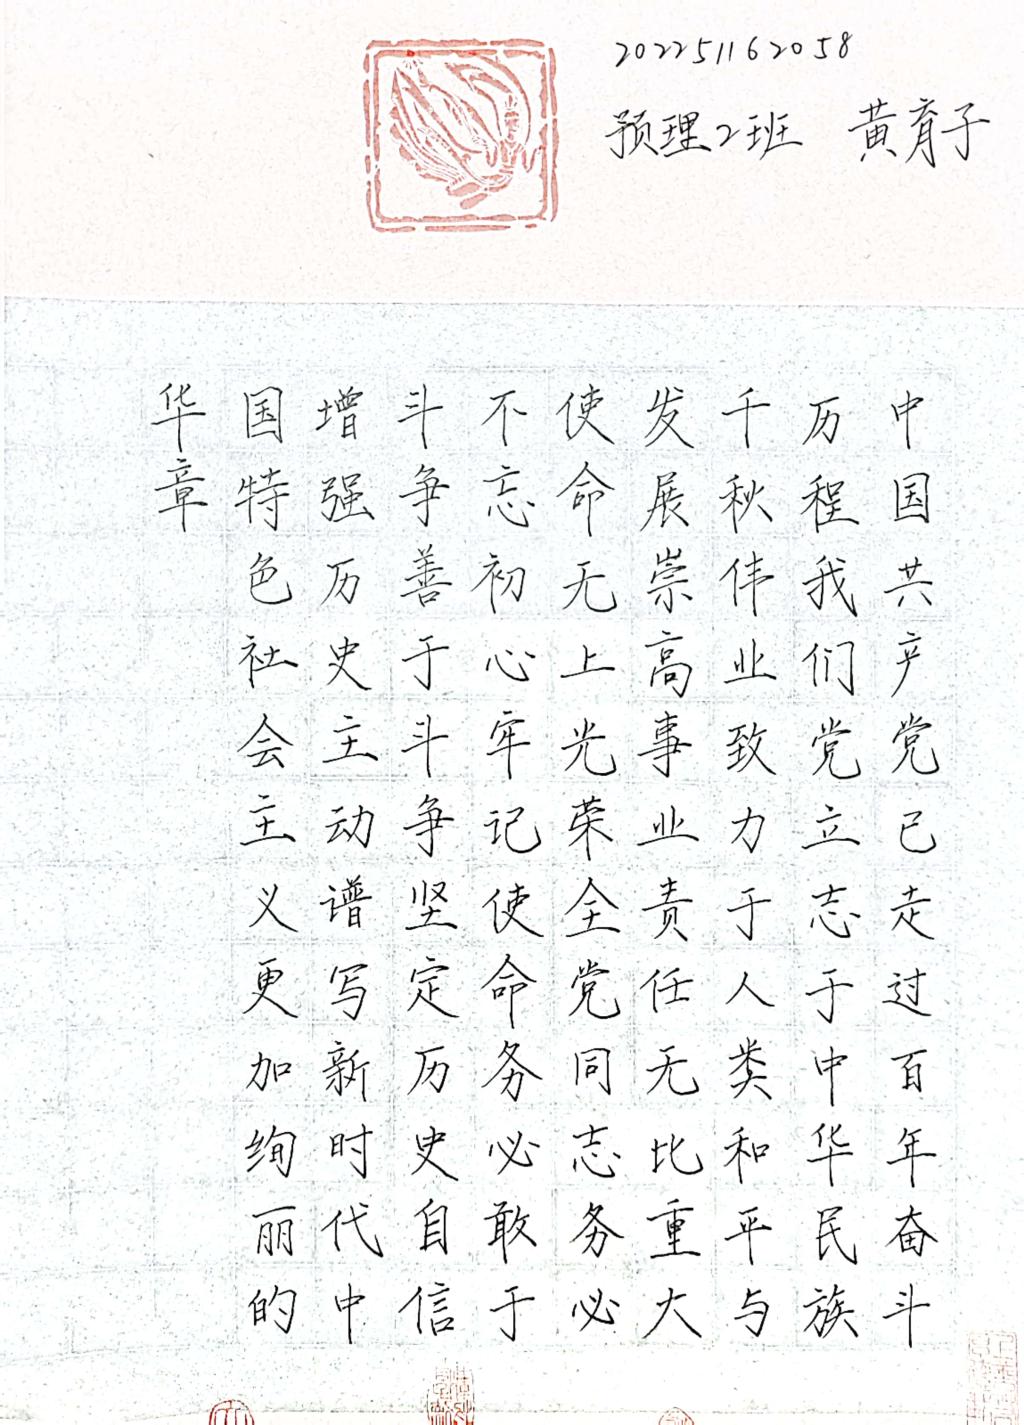 202251162058
预理2班 黄育子
中国共产党已走过百年奋斗
历程我们党立志于中华民族
千秋伟业致力于人类和平与
发展崇高事业责任无比重大
使命无上光荣全党同志务必
不忘初心牢记使命务必敢于
斗争善于斗争坚定历史自信
增强历史主动谱写新时代中
国特色社会主义更加绚丽的
华章